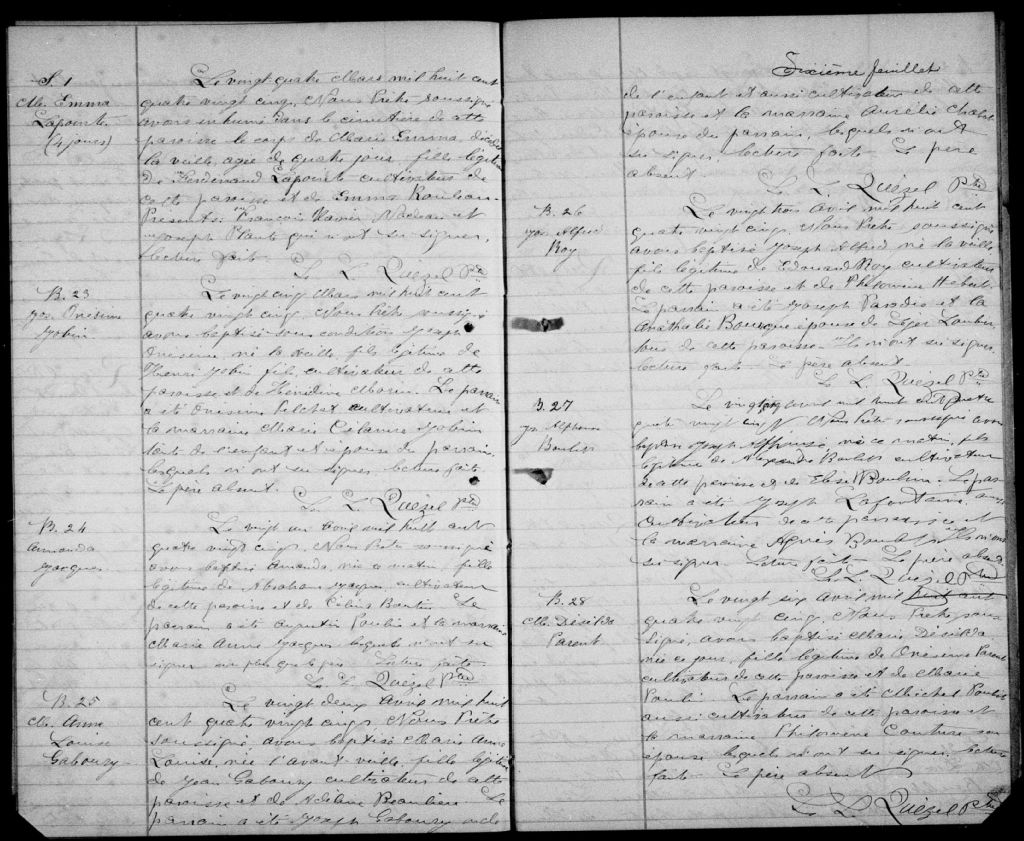 S. 1
M. Emma
Lapointe
(4 jours)
Le vingt quatre Mars mil huit cent
quatre vingt cinq, Nous Prêtre soussigné
avons inhumé dans le cimetière de cette
paroisse le corps de Marie Emma, décédée
la veille, agée de quatre jours, fille légitime
de Ferdinand Lapointe cultivateur de
cette paroisse et de Emma Rouleau.
Présents: François Xavier Nadeau et
Joseph Plante qui n'ont su signer.
Lecture faite.
L. L. Quézel Ptre
B. 23
Jos. Onésime
Jobin
Le vingt cinq Mars mil huit cent
quatre vingt cinq, Nous Prêtre soussigné
avons baptisé sous condition Joseph
Onésime, né la veille, fils légitime de
Henri Jobin fils, cultivateur de cette
paroisse et de Morin. Le parrain
a été Onésime Pelchat cultivateur et
la marraine Marie Célanire Jobin
tante de l'enfant et épouse du parrain,
lesquels n'ont su signer. Lecture faite.
Le père absent.
L. L. Quézel Ptre
B. 24
Amanda
Jacques
Le vingt un Avril mil huit cent
quatre vingt cinq, Nous Prêtre soussigné
avons baptisé Amanda, née ce matin, fille
légitime de Abraham Jacques cultivateur
de cette paroisse et de Célina Le
parrain a été Augustin Poulin et la marraine
Marie Anne Jacques lesquels n'ont su
signer non plus que le père. Lecture faite.
L. L. Quézel Ptre
B. 25
M. Anne
Louise
Gaboury
Le vingt deux Avril mil huit
cent quatre vingt cinq Nous Prêtre
soussigné, avons baptisé Marie Anne
Louise, née l'avant veille, fille légitime
de Jean Gaboury cultivateur de cette
paroisse et de Adéline Beaulieu. Le
parrain a été Joseph Gaboury oncle
Sixième feuillet
de l'enfant et aussi cultivateur de cette
paroisse et la marraine Aurélie
épouse du parrain, lesquels n'ont
su signer. Lecture faite. Le père
absent
L. L. Quézel Ptre
B. 26
Jos. Alfred
Roy
Le vingt trois Avril mil huit cent
quatre vingt cinq, Nous Prêtre soussigné
avons baptisé Joseph Alfred, né la veille
fils légitime de Edouard Roy cultivateur
de cette paroisse et de Philomène Hébert.
Le parrain a été Joseph Paradis et la
Bourque épouse de Léger
tous de cette paroisse. Ils n'ont su signer.
Lecture faite. Le père absent.
L. L. Quézel Ptre
B. 27
Js. Alphonse
Boulet
Le vingt avril mil huit cent quatre
vingt cinq Nous Prêtre soussigné avons
baptisé Joseph Alphonse, né ce matin, fils
légitime de Alexandre cultivateur
de cette paroisse et de Elise Le parrain
a été Joseph Lafontaine
cultivateur de cette paroisse et
la marraine Agnès Ils n'ont
su signer. Lecture faite. Le père absent
L. L. Quézel Ptre
B. 28
M. Désilda
Parent
Le vingt six Avril mil huit cent
quatre vingt cinq, Nous Prêtre soussigné,
avons baptisé Marie Désilda
née ce jour, fille légitime de Onésime Parent
cultivateur de cette paroisse et de Marie
Le parrain a été Michel
aussi cultivateur de cette paroisse et
la marraine Philomène Couture son
épouse lesquels n'ont su signer. Lecture
faite. Le père absent.
L. L. Quézel Ptre